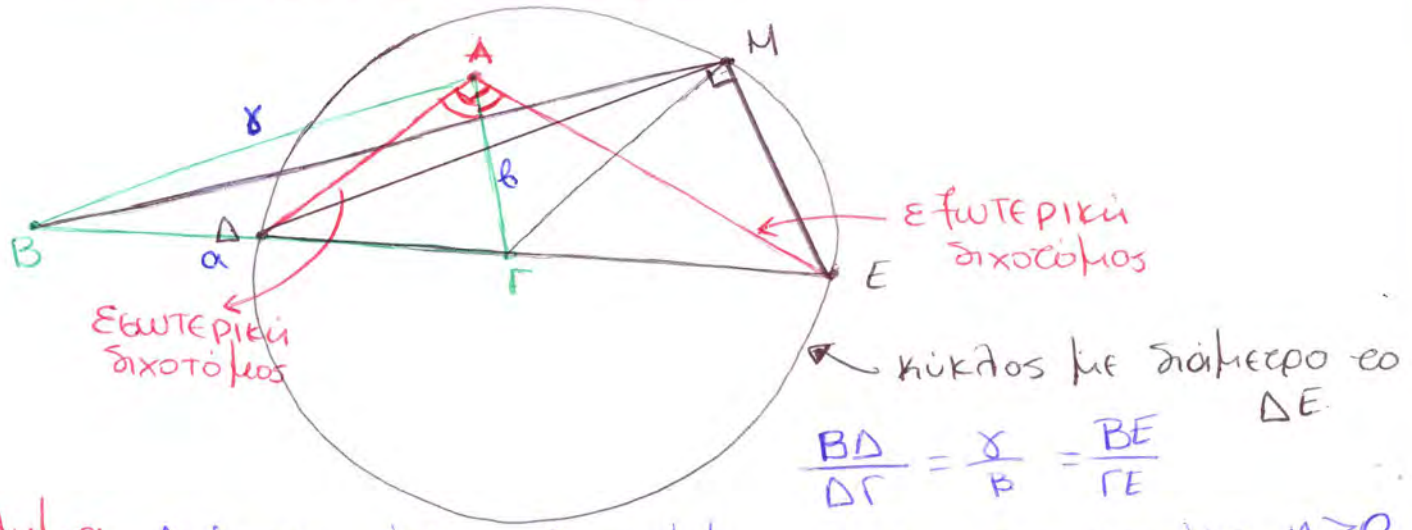 A
M
γ
β
B
Δ
α
Γ
E
εξωτερική
διχοτόμος
εσωτερική
διχοτόμος
κύκλος με διάμετρο το
ΔΕ
ΒΔ/ΔΓ = γ/β = ΒΕ/ΓΕ